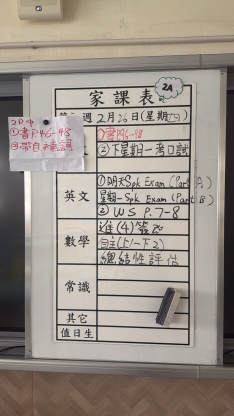 家課表
2A
2月26日(星期四)
2R中
①書P46-48
①書P46-48
②下星期一考口試
英文
①明天Spk Exam (Part A)
星期一Spk Exam (Part B)
② WS P.7-8
數學
進(4)簽改
自主(上/一下2)
總結性評估
常識
其它
值日生